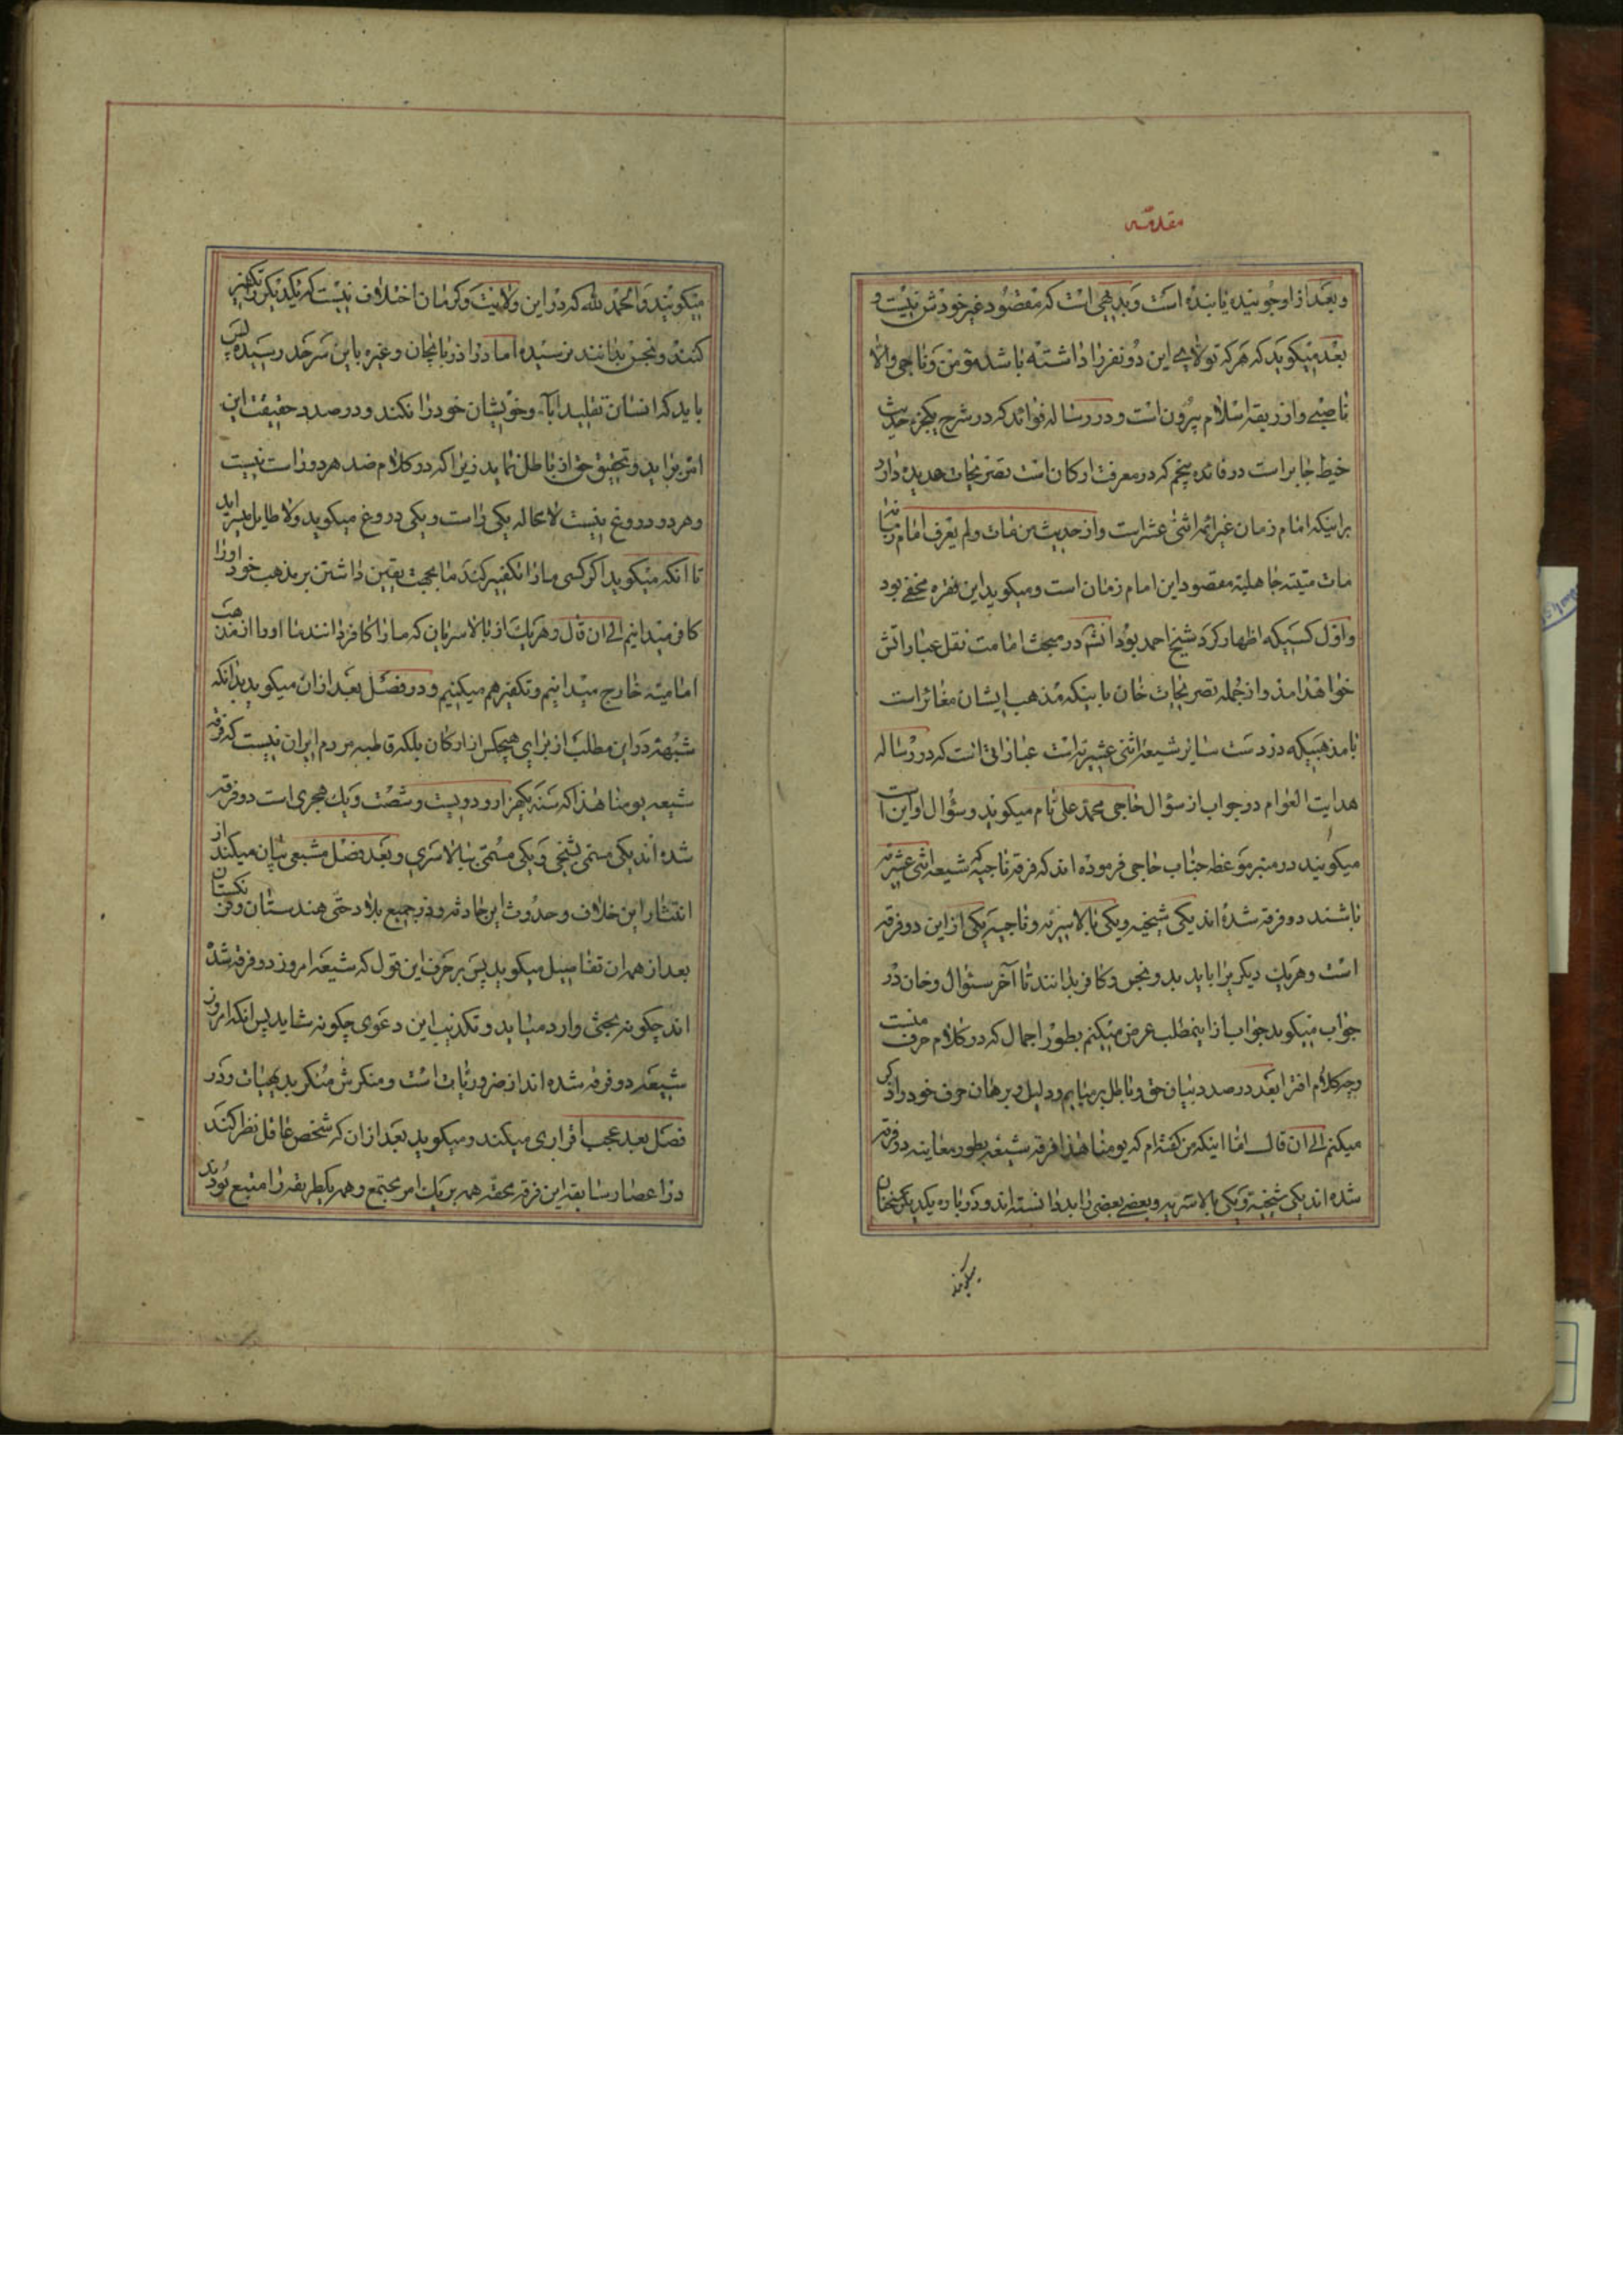 مقدمه
و بعد از او جوینده یابنده است و بدیهی است که مقصود غیر خودش نیست و
بعد میکوید که هر که تولای این دو نفر را داشته باشد مؤمن و ناجی والا
ناصبی و از ربقه اسلام بیرون است و در رساله فوائد که در شرح یکجزء حدیث
خیط جابر است در فائده پنجم که در معرفت ارکان است تصریحات عدیده دارد
براینکه امام زمان غیر ائمه اثنی عشر است و از حدیث من مات ولم یعرف امام زمانه
مات میتة جاهلیة مقصود این امام زمان است و میکوید این فقره مخفی بود
و اول کسیکه اظهار کرد شیخ احمد بود انشٓ در مبحث امامت نقل عباراتش
خواهد امد و از جمله تصریحات خان باینکه مذهب ایشان مغائر است
با مذهبیکه در دست سایر شیعه اثنی عشریه است عباراتی است که در رساله
هدایت العوام در جواب از سؤال حاجی محمد علی نام میکویند و سؤال او این است
میکویند در منبر موعظه جناب حاجی فرموده اند که فرقه ناجیه که شیعه اثنی عشریه
باشند دو فرقه شده اند یکی شیخیه و یکی بالاسریه و ناجیه یکی از این دو فرقه
است و هر یک دیکریرا باید بد و نجس و کافر بدانند تا آخر سئوال و خان در
جواب میکوید جواب از اینمطلب عرض میکنم بطور اجمال که در کلام حرف منست
وچه کلام افترا بعد در صدد بیان حق و باطل برمیایم و دلیل و برهان حرف خود را ذکر
میکنم الی ان قال اما اینکه من کفته ام که یومنا هذا فرقه شیعه بطور معاینه دو فرقه
شده اند یکی شیخیه و یکی بالاسریه و بعضی بعضی را بد دانسته اند و در باره یکدیکر سخنان
میکویند
میکویند و الحمد لله که در این ولایت و کرمان اختلاف نیست که یکدیکر را تکفیر
کنند و نجس بدانند نرسیده اما در اذربایجان و غیره باین سرحد رسیده پس
باید که انسان تقلید اباء و خویشان خود را نکند و در صدد حقیقت این
امر براید و تحقیق حق از باطل نماید زیرا که دو کلام ضد هر دو راست نیست
و هر دو دروغ نیست لامحاله یکی راست و یکی دروغ میکوید و لاطایل میسراید
تا انکه میکوید اکر کسی ما را تکفیر کند ما بجهت یقین داشتن بر مذهب خود او را
کافر میدانیم الی ان قال و هر یک از بالاسریان که ما را کافر دانند ما او را از مذهب
امامیه خارج میدانیم و تکفیر هم میکنیم و در فصل بعد از ان میکوید بدانکه
شبهه در این مطلب از برای هیچکس از ارکان بلکه قاطبه مردم ایران نیست که فرقه
شیعه یومنا هذا که سنه یکهزار و دویست و شصت و یک هجری است دو فرقه
شده اند یکی مسمی بشیخی و یکی مسمی ببالاسری و بعد فصل مشبعی بیان میکند از
انتشار این خلاف و حدوث این حادثه و در جمیع بلاد حتی هندستان و فرنکستان
بعد از همه ان تفاسیل میکوید پس بر حرف این قول که شیعه امروز دو فرقه شده
اند چکونه بحثی وارد میاید و تکذیب این دعوی چکونه شاید پس انکه امروز
شیعه دو فرقه شده اند از ضروریات است و منکرش منکر بدیهیات و در
فصل بعد عجب اقراری میکند و میکوید بعد از ان که شخص غافل نظر کند
در اعصار سابقه این فرقه محقه همه بر یک امر مجتمع و همه یکطریقه را متبع بودند